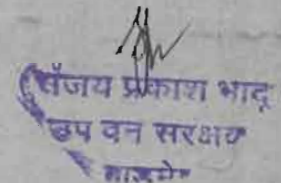 संजय प्रकाश भादू
उप वन सरंक्षक
बाड़मेर